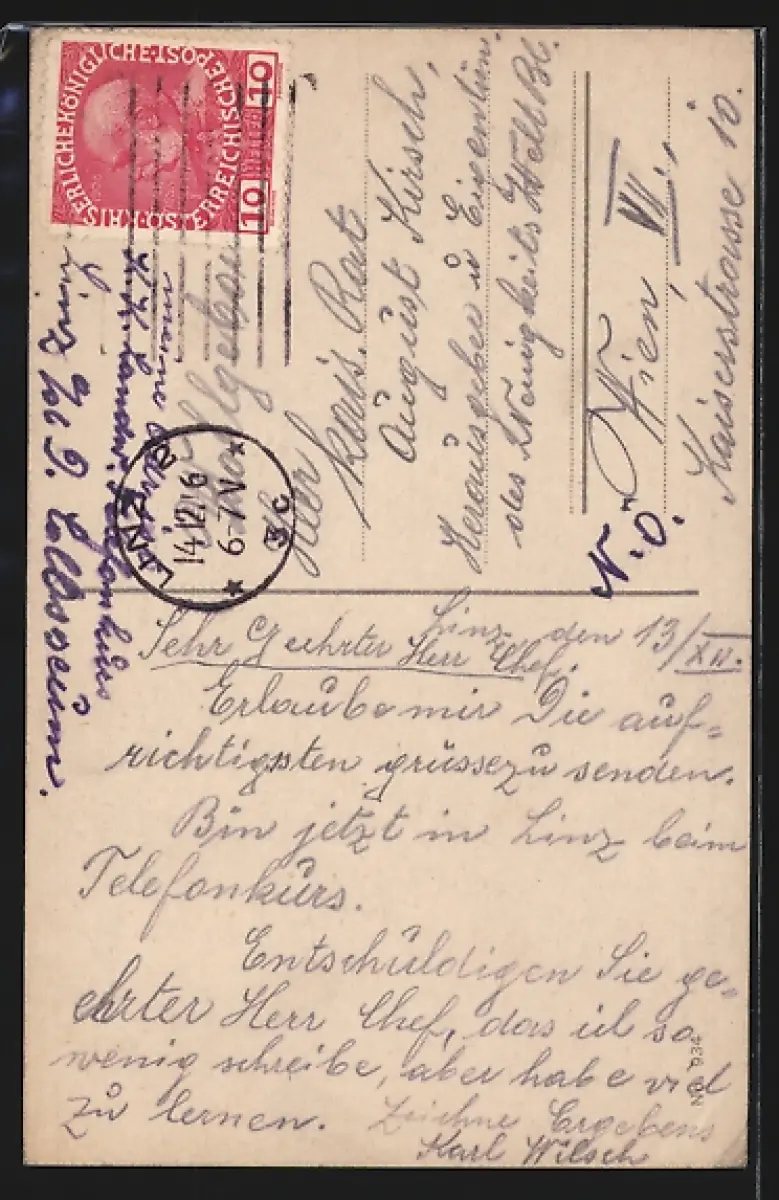 KAISERLICHEKÖNIGLICHE ÖSTERREICHISCHE POST
10 HELLER 10
LINZ 2
14.12.16
6-7 V
* 3c *
meine
k.k. Landw.
Linz a/D. Collosseum.
Wohlgeboren
Herr kais. Rat
August Kirsch,
Herausgeber u Eigentüm.
des Neuigkeits Welt Bl.
Wien, VII.,
Kaiserstrasse 10.
N.Ö.
Linz, den 13/XII.
Sehr Geehrter
Herr Chef.
Erlaube mir Die auf=
richtigsten grüsse zu senden.
Bin jetzt in Linz beim
Telefonkurs.
Entschuldigen Sie ge=
ehrter Herr Chef, das ich so
wenig schreibe, aber habe viel
zu lernen. Zeichne Ergebens
Karl Wilsch
No. 934